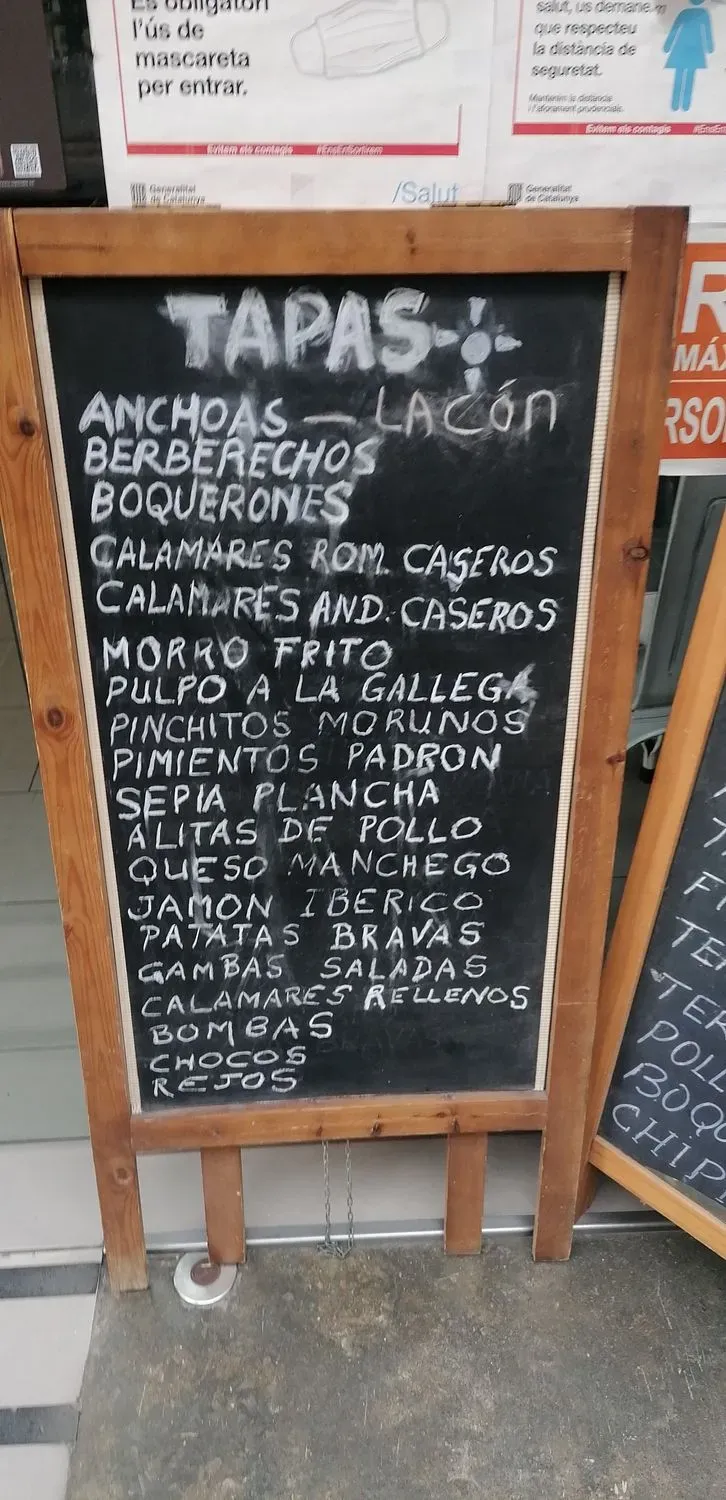 Es obligatori
l'ús de
mascareta
per entrar.
Evitem els contagis #EnsEnSortirem
Generalitat
de Catalunya
/Salut
salut, us demanem
que respecteu
la distància de
seguretat.
Mantenim la distància
i l'aforament prudencials.
Evitem els contagis
Generalitat
de Catalunya
TAPAS
ANCHOAS — LACÓN
BERBERECHOS
BOQUERONES
CALAMARES ROM. CASEROS
CALAMARES AND. CASEROS
MORRO FRITO
PULPO A LA GALLEGA
PINCHITOS MORUNOS
PIMIENTOS PADRON
SEPIA PLANCHA
ALITAS DE POLLO
QUESO MANCHEGO
JAMON IBERICO
PATATAS BRAVAS
GAMBAS SALADAS
CALAMARES RELLENOS
BOMBAS
CHOCOS
REJOS
MÁX
TER
POLL
BOQU
CHIP